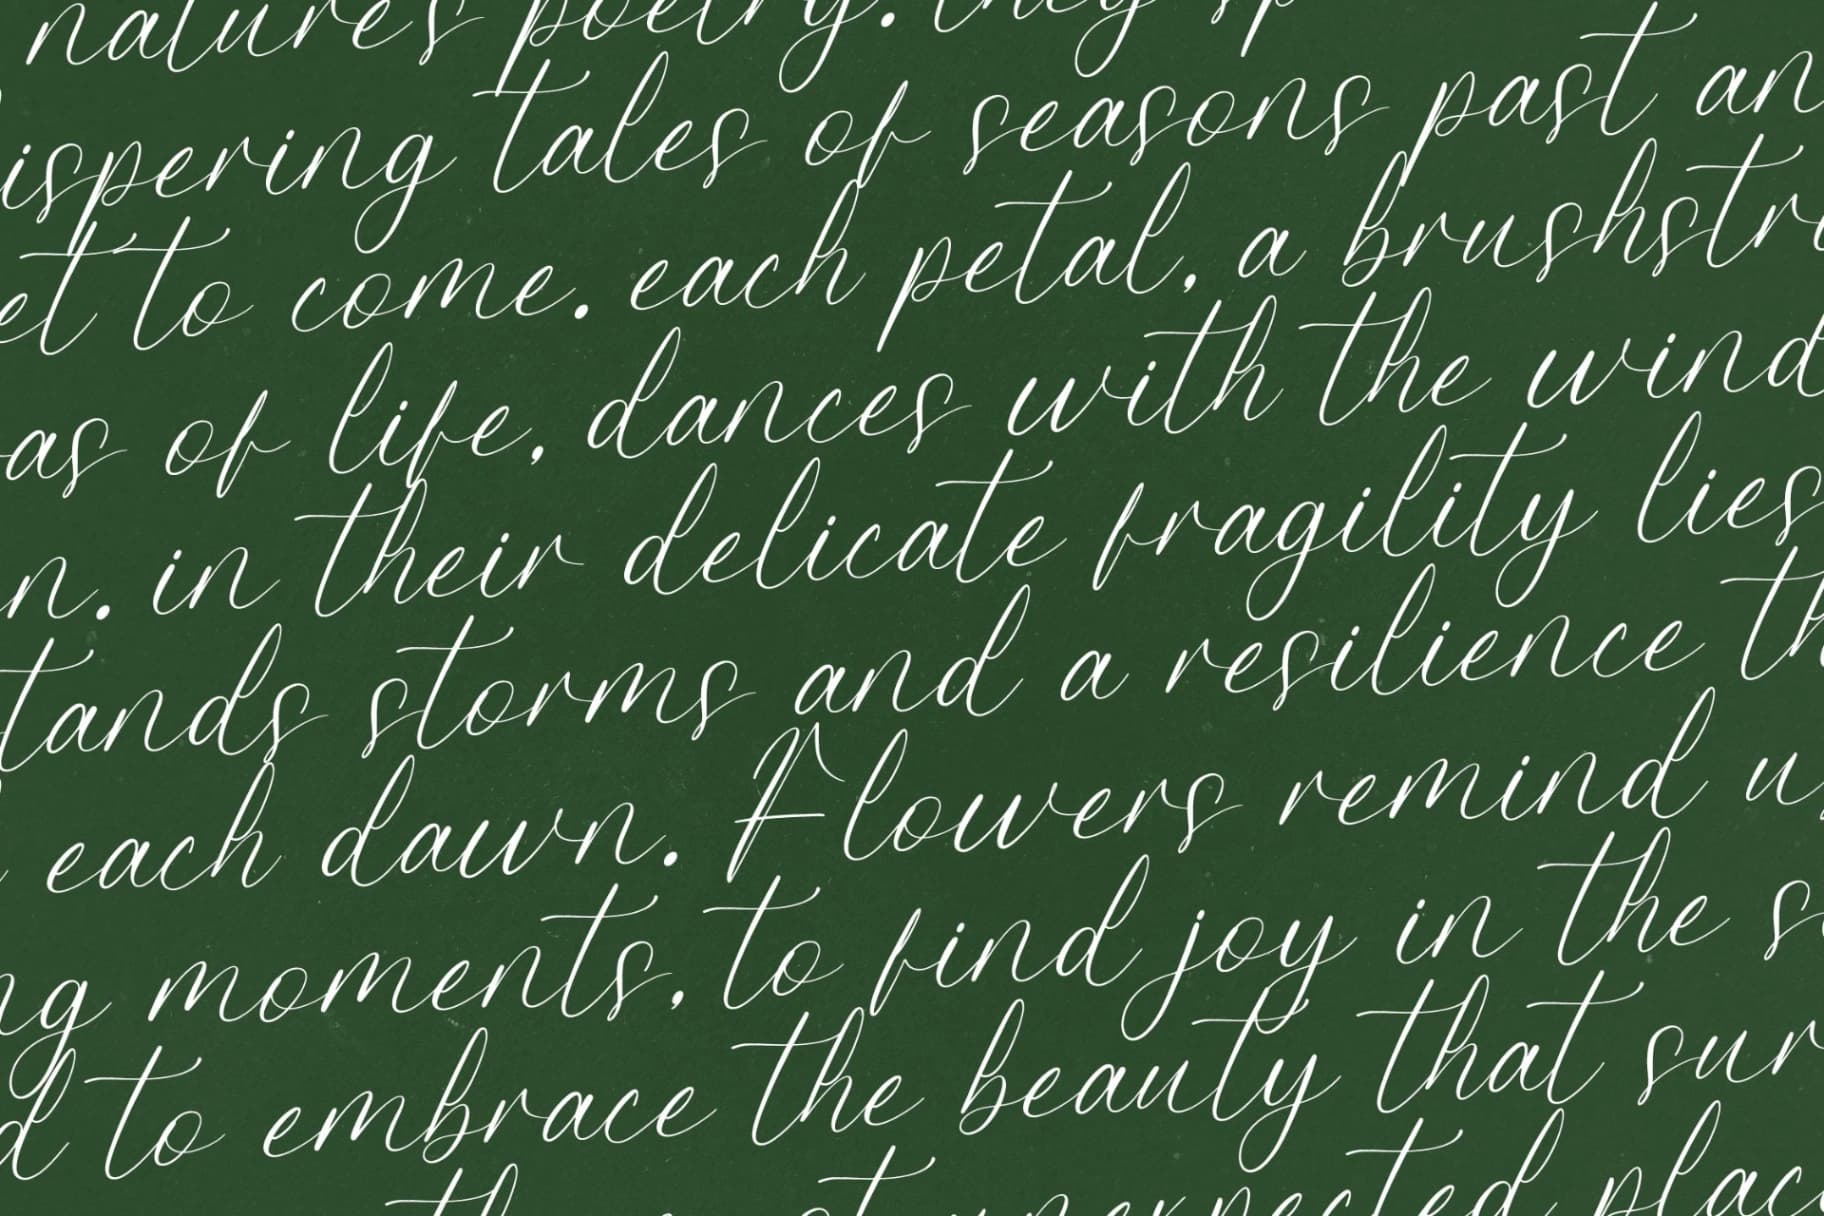 natures poetry. they sp
ispering tales of seasons past an
et to come. each petal, a brushstr
as of life, dances with the wind
n. in their delicate fragility lies
tands storms and a resilience th
each dawn. Flowers remind u
ng moments, to find joy in the s
d to embrace the beauty that sur
unexpected plac